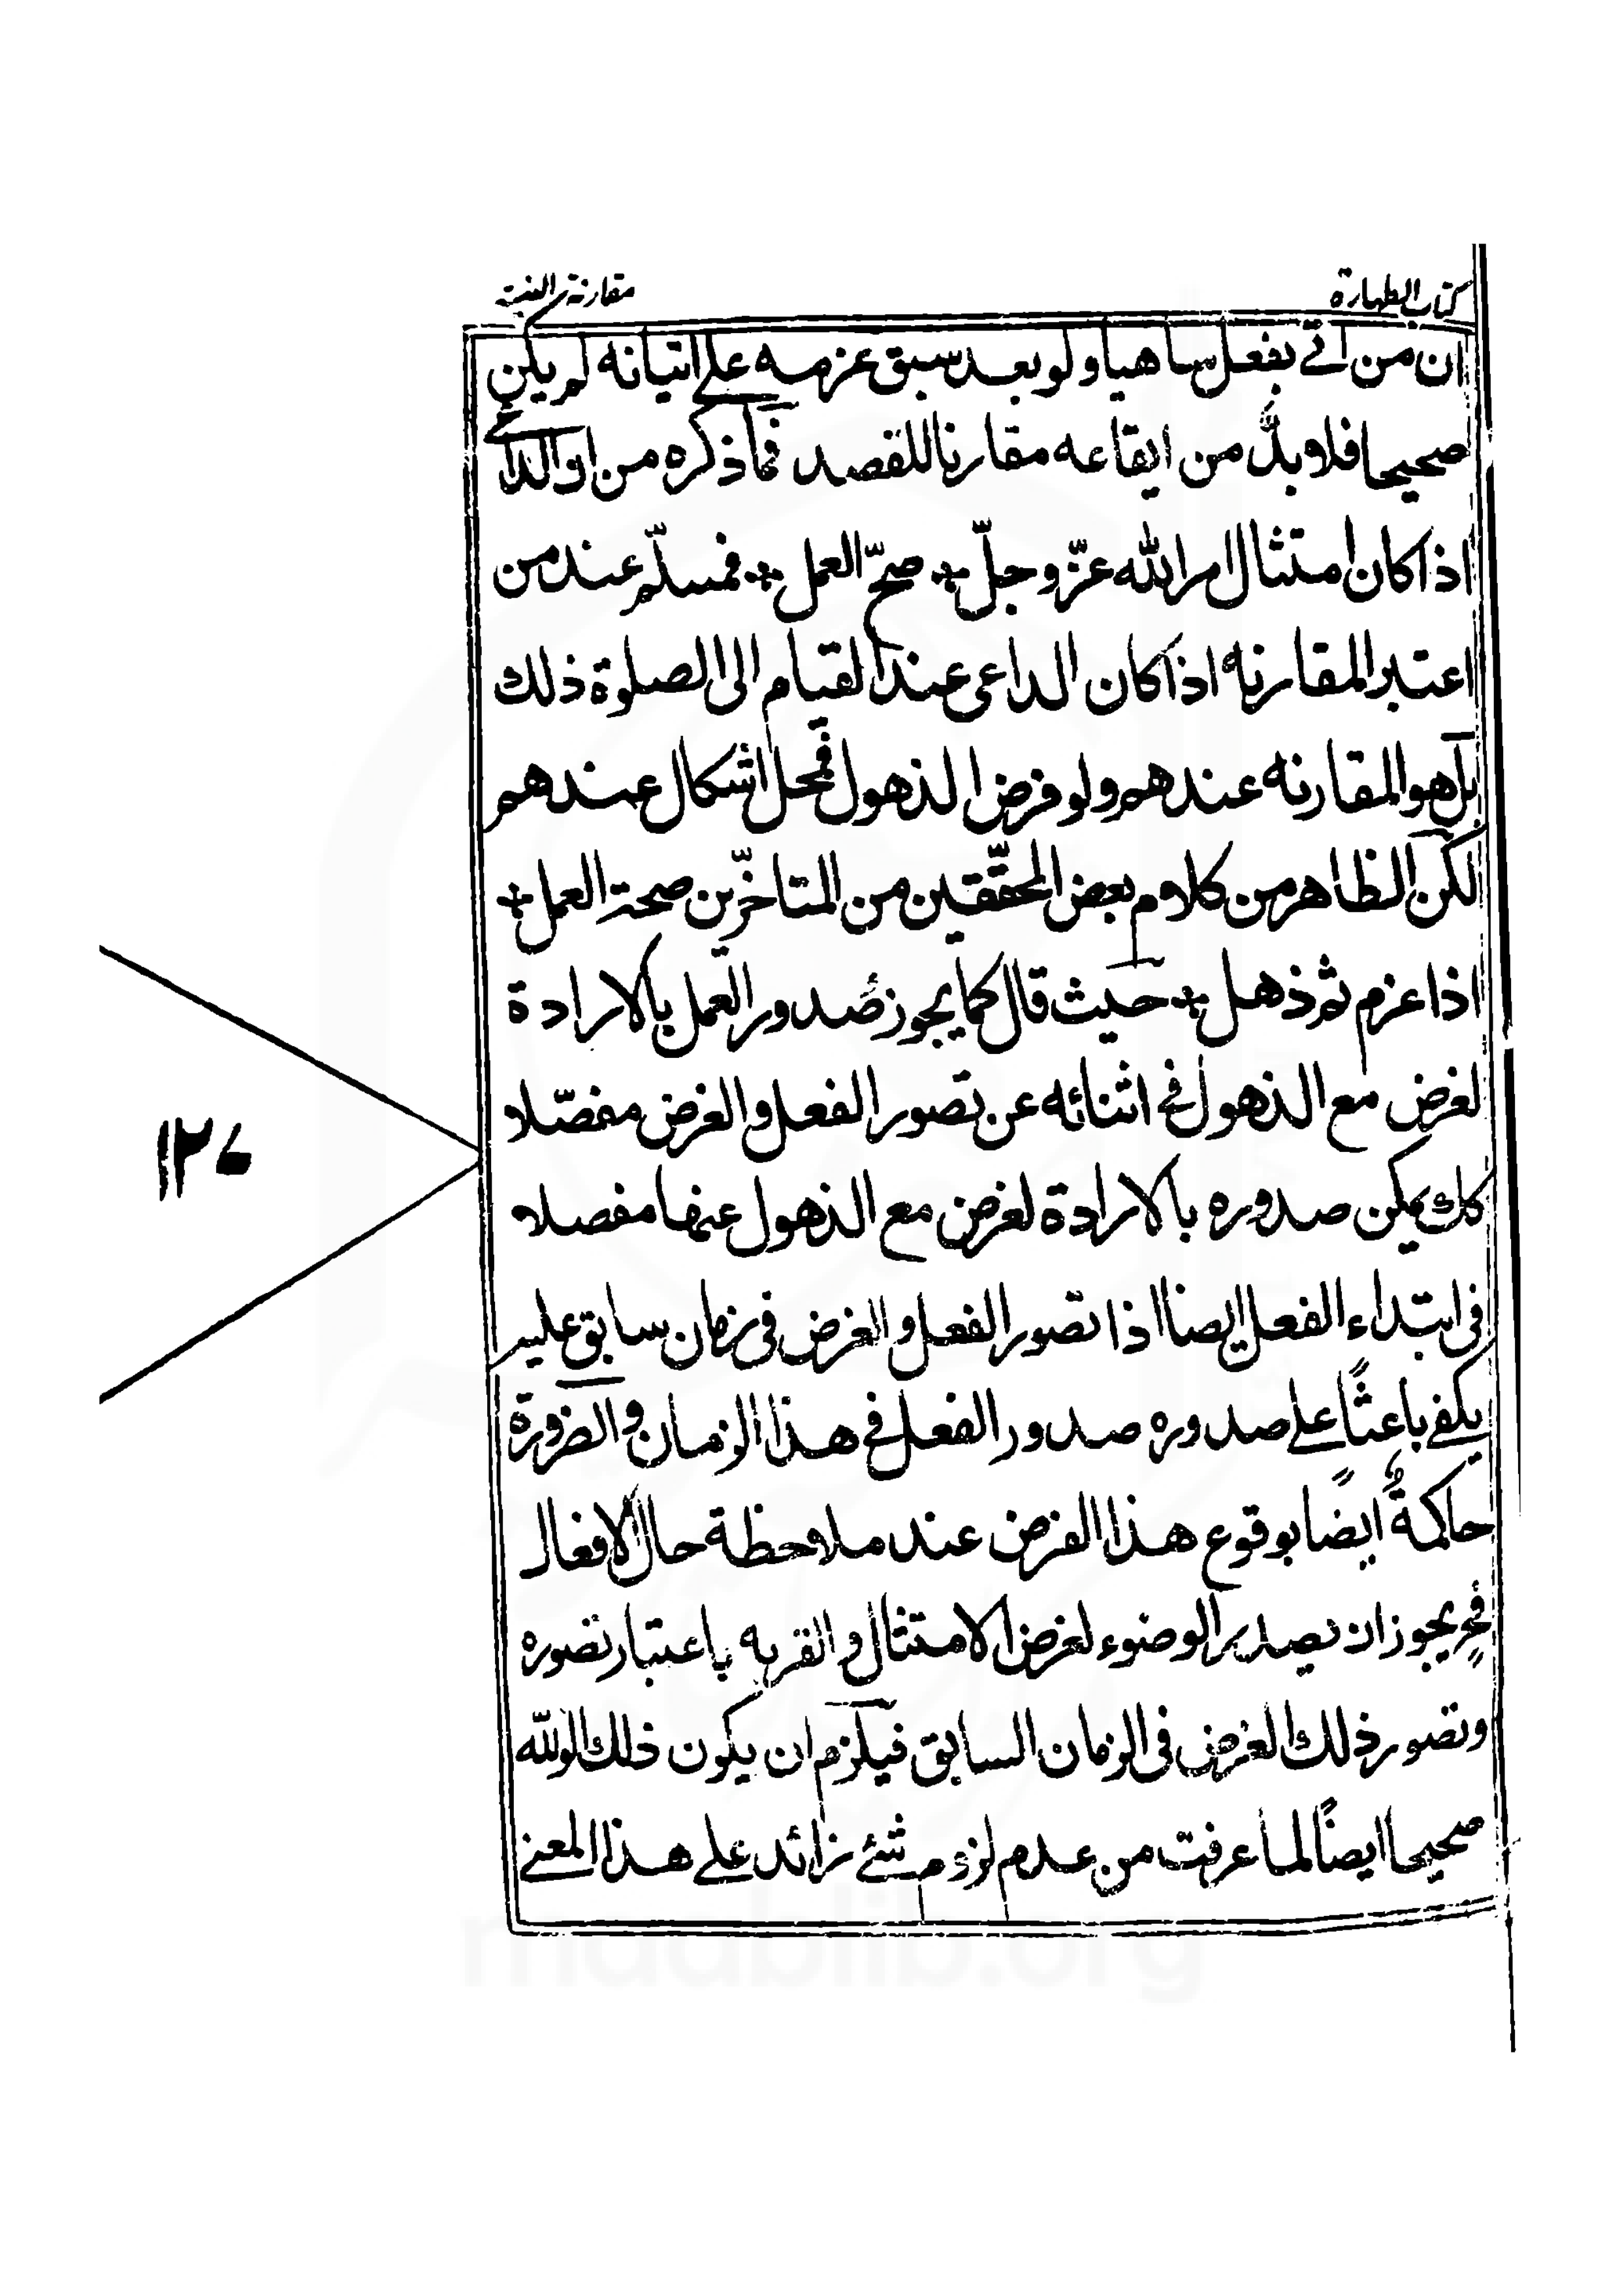 كتاب الطهارة
مقارنة النية
ان من اتے بفعل ساهيا ولو بعد سبق عزمه علے اتيانه لم يكن
صحيحا فلا بدّ من ايقاعه مقارنا للقصد فما ذكره من ان الداعے
اذا كان امتثال امر الله عزّ وجلّ * صحّ العمل * فمسلّم عند من
اعتبر المقارنه اذا كان الداعى عند القيام الى الصلوة ذلك
بل هو المقارنه عندهم ولو فرض الذهول فمحل اشكال عندهم
لكن الظاهر من كلام بعض المحقّقين من المتاخّرين صحة العمل *
اذا عزم ثم ذهل * حيث قال كما يجوز صدور العمل بالارادة
لغرض مع الذهول فے اثنائه عن تصور الفعل والغرض مفصّلا
كك يمكن صدوره بالارادة لغرض مع الذهول عنها مفصلا
فى ابتداء الفعل ايضا اذا تصور الفعل والغرض فى زمان سابق عليه
يكفے باعثًا علے صدوره صدور الفعل فے هذا الزمان والضرورة
حاكمةٌ ايضًا بوقوع هذا الفرض عند ملاحظة حال الافعال
فح يجوز ان يصدر الوضوء لغرض الامتثال والقربه باعتبار تصوره
وتصور ذلك الغرض فى الزمان السابق فيلزم ان يكون ذلك الوضوء
صحيحا ايضًا لما عرفت من عدم لزوم شئے زائد علے هذا المعنے
١٢٧
maablib.org